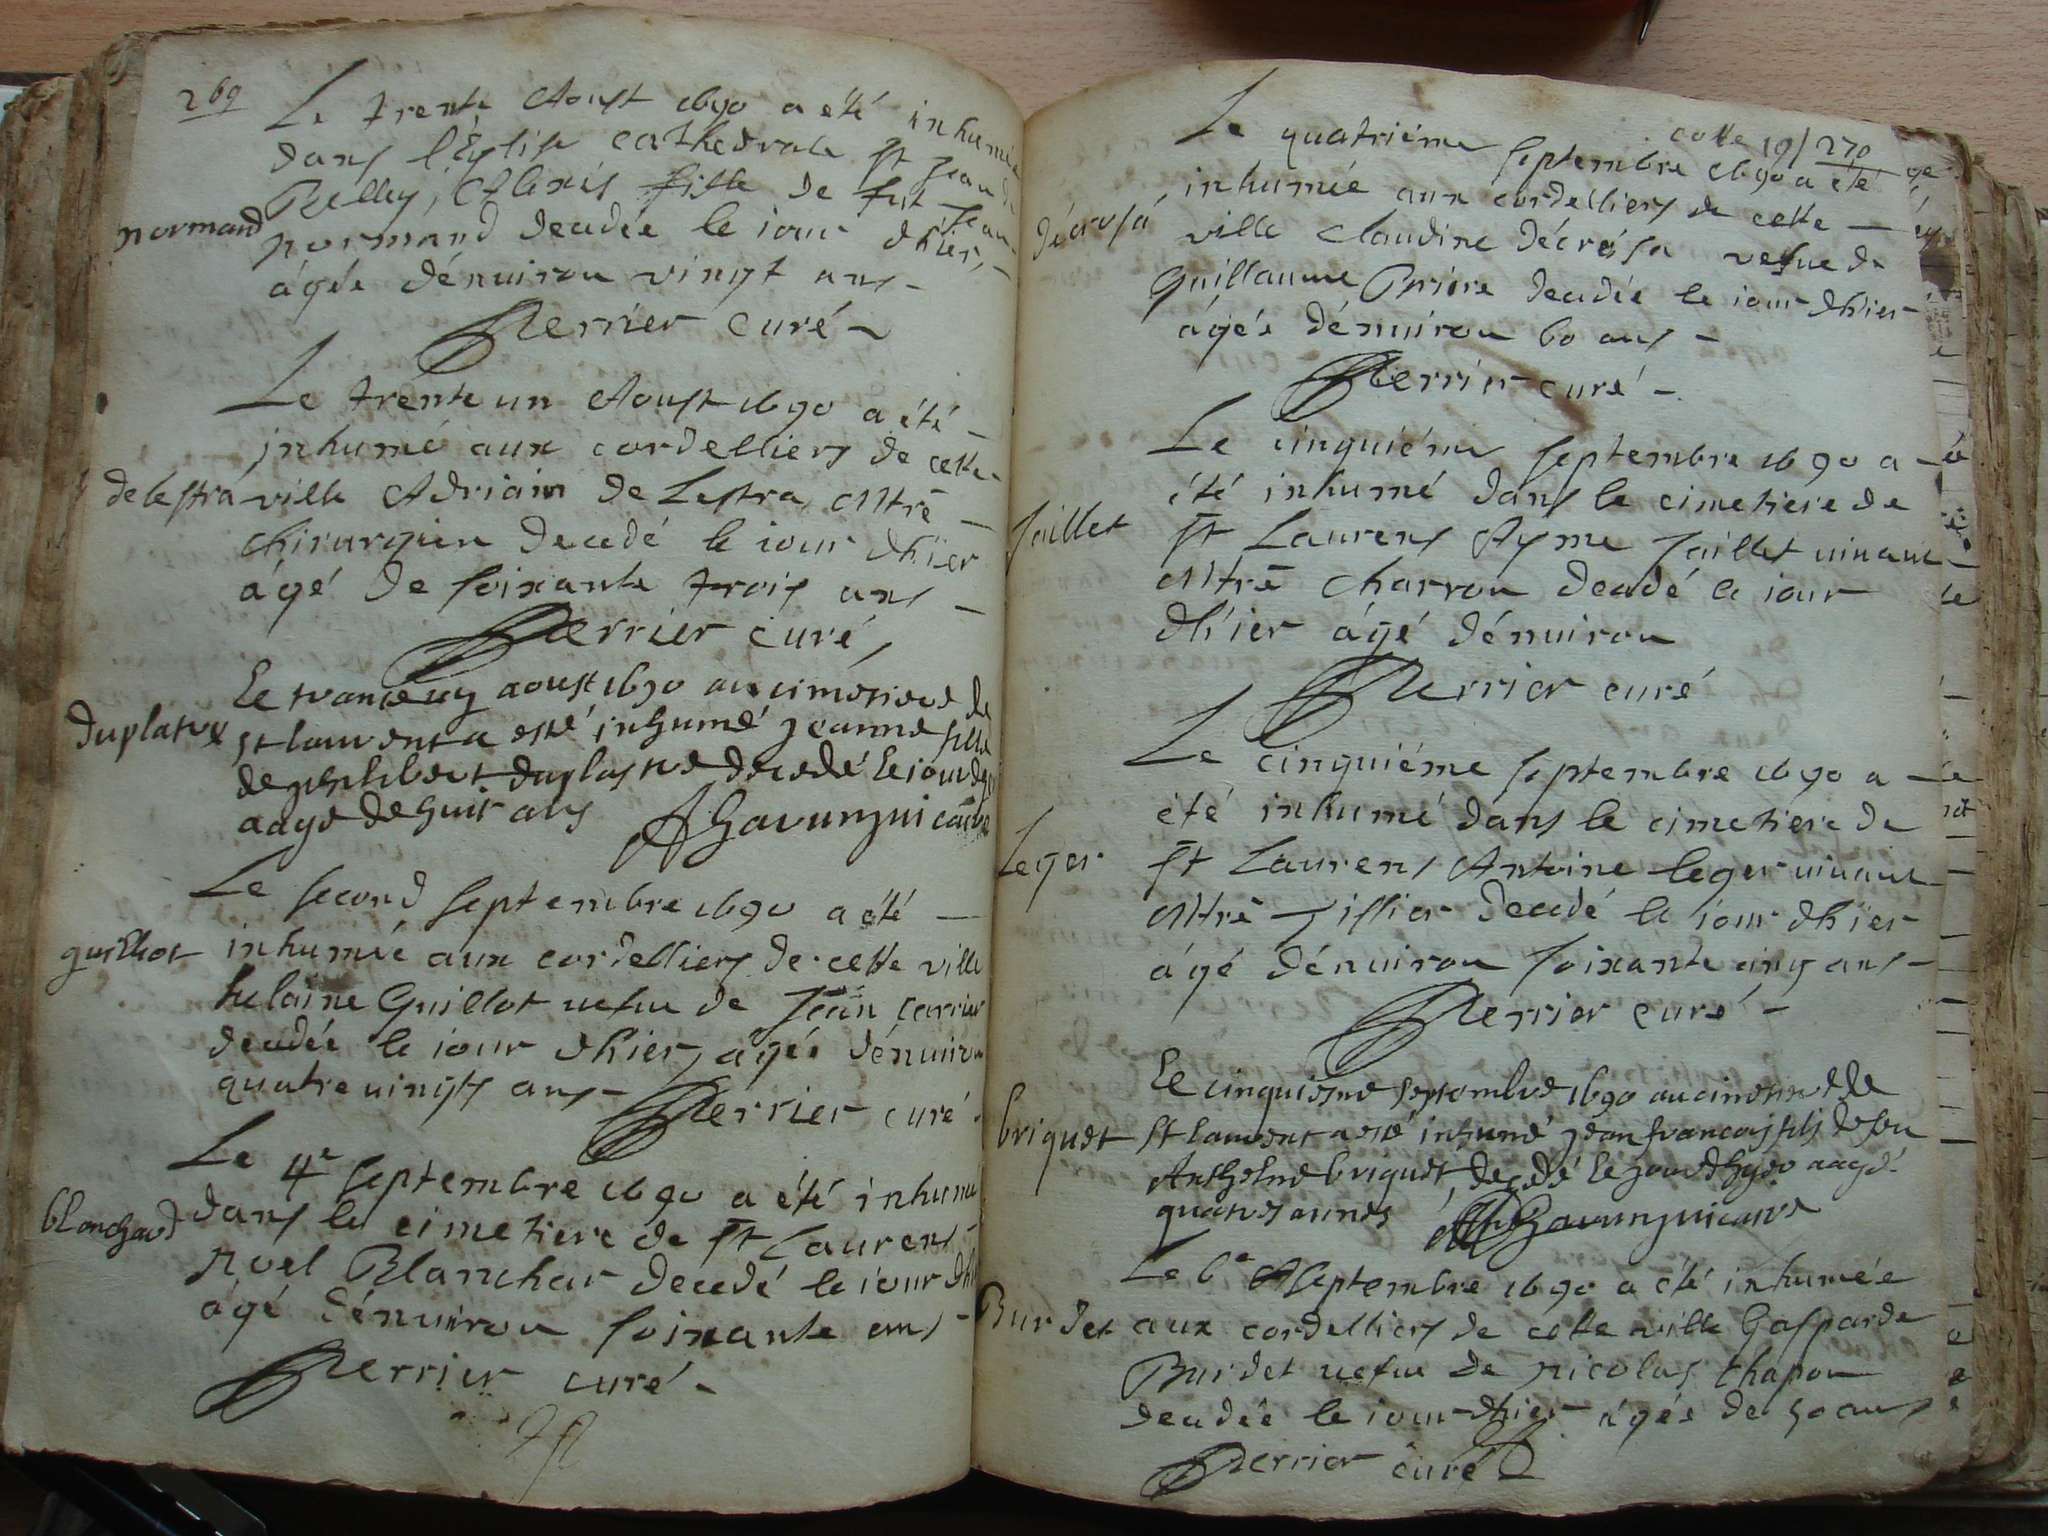 269
Le trente Aoust 1690 a été inhumée
dans l'Eglise cathedrale St Jean de
Belley, Alexis fille de fut Jean
normand
normand decedée le iour d'hier,
âgée d'énuiron vingt ans -
Perrier curé -
Le trente un Aoust 1690 a été -
inhumé aux cordelliers de cette -
de lestra
ville Adriain de Lestra Mtre -
chirurgien decedé le iour d'hier
âgé de soixante trois ans -
Perrier curé
Le trante aoust 1690 au cimetiere de
duplatre
st laurent a esté inhumé Jeanne fille
de philibert duplastre decedé le iour
aagé de huit ans
Le second septembre 1690 a été -
guilliot
inhumée aux cordelliers de cette ville
helaine Guillot uefue de Jean Carrier
decedée le iour d'hier, agée d'énuiron
quatre uingts ans - Perrier curé
Le 4e septembre 1690 a été inhumé
blanchard
dans le cimetiere de St Laurens
Noel Blanchar decedé le iour d'hier
âgé d'énuiron soixante ans -
Perrier curé -
cotte 19 / 270
Le quatriéme septembre 1690 a été
inhumée aux cordelliers de cette -
décrosa
ville Claudine décrosa vefue de
Guillaume Briere decedée le iour d'hier
âgée d'énuiron 60 ans -
Perrier curé -
Le cinquiéme septembre 1690 a -
été inhumé dans le cimetiere de
Jaillet
St Laurens Ayme Jaillet uiuant
Mtre charron decedé le iour
d'hier âgé d'énuiron
Perrier curé
Le cinquiéme septembre 1690 a -
été inhumé dans le cimetiere de
Leger
St Laurens Antoine leger uiuant
Mtre Tissier decedé le iour d'hier
âgé d'énuiron soixante cinq ans -
Perrier curé -
Le cinquiesme septembre 1690 au cimetiere de
briquet
st laurent a esté inhumé Jean francois fils de feu
Anthelme briquet, decedé le jour d'hyer aagé
quatre annes
Le 6e septembre 1690 a été inhumée
Burdet
aux cordelliers de cette ville Gasparde
Burdet uefue de Nicolas Chapon
decedée le iour d'hier âgée de 50 ans
Perrier curé